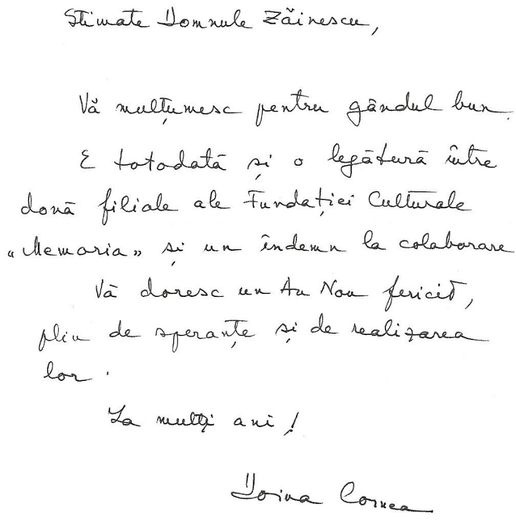 Stimate Domnule Zăinescu,
Vă mulțumesc pentru gândul bun.
E totodată și o legătură între
două filiale ale Fundației Culturale
„Memoria” și un îndemn la colaborare
Vă doresc un An Nou fericit,
plin de speranțe și de realizarea
lor.
La mulți ani!
Doina Cornea